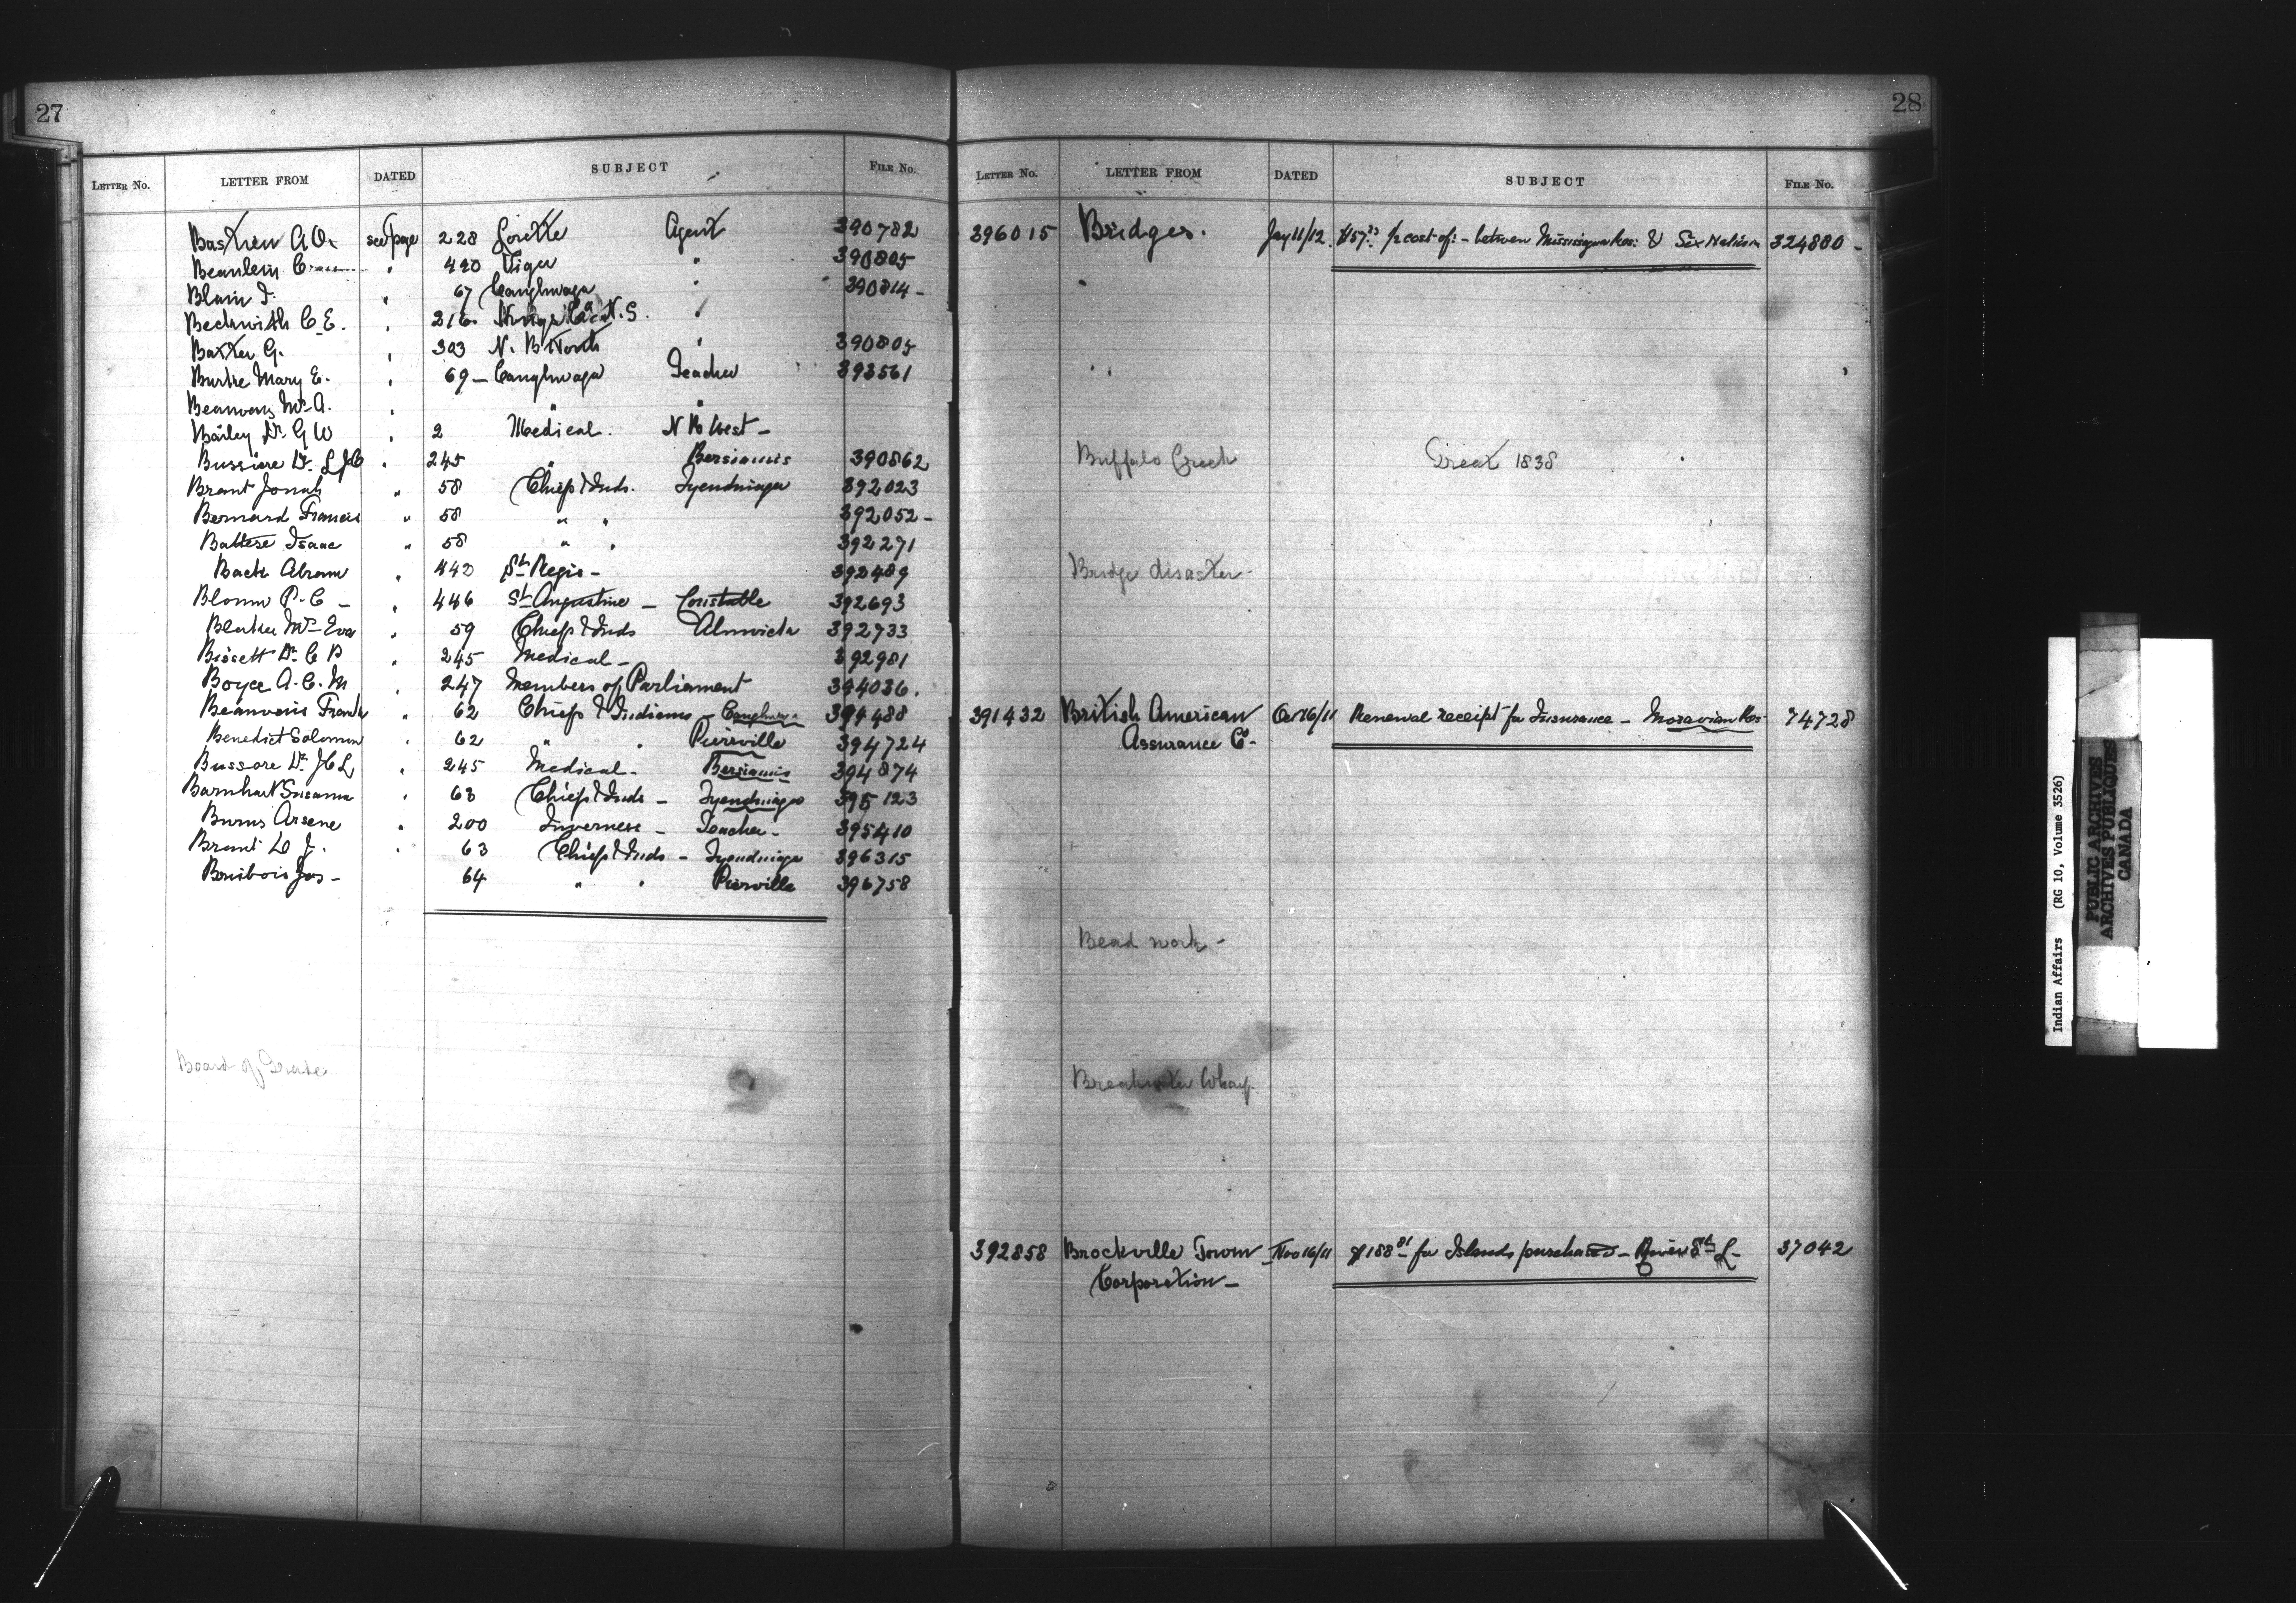 27
LETTER No. LETTER FROM DATED SUBJECT FILE No.
Bastien A.O. see page 228 Lorette Agent 390782
Beaulieu " 420 Viger " 390805
Blain J. " 67 Caughnawaga " 390814 -
Beckwith C.E. " 216 N.S. "
Baxter G. " 303 N. B North " 390805
Burke Mary E. " 69 - Caughnawaga Teacher 393561
Beauvais Mrs A. " " "
Bailey Dr. G W " 2 Medical. N B West -
Bussiere Dr. " 245 " Bersiamis 390862
Brant Jonah " 58 Chiefs & Inds. Tyendinaga 392023
Bernard Francis " 58 " " 392052 -
Battese Isaac " 58 " " 392271
Back Abram " 442 St. Regis - 392489
Blouin P. C - " 446 St. Augustine - Constable 392693
Blaker Mrs Eva " 59 Chiefs & Inds Alnwick 392733
Bissett Dr. C P " 245 Medical - 392981
Boyce A. C. M " 247 Members of Parliament 394036.
Beauvais Frank " 62 Chiefs & Indians - Caughnawaga 394488
Benedict Solomon " 62 " " Pierville 394724
Bussore Dr. J C L " 245 Medical - Bersiamis 394874
Barnhart Susanna " 63 Chiefs & Inds - Tyendinaga 395123
Burns Arsene " 200 Inverness - Teacher - 395410
Brant D J. " 63 Chiefs & Inds - Tyendinaga 396315
Bruibois Jos - 64 " " Pierville 396758
Board of Trade
28
LETTER No. LETTER FROM DATED SUBJECT FILE No.
396015 Bridges. Jay 11/12 1/2 cost of: - between Mississagua Res: & Six Nation 324880 -
Buffalo Creek Treat 1838
Bridge disaster -
391432 British American Oct 16/11 Renewal receipt for Insurance - Moravian Res 74728
Assurance Co -
Bead work -
Breakwater Wharf.
392858 Brockville Town Nov 16/11 $188 81 for Islands purchased - River St. L - 37042
Corporation -
Indian Affairs (RG 10, Volume 3526)
PUBLIC ARCHIVES
ARCHIVES PUBLIQUES
CANADA